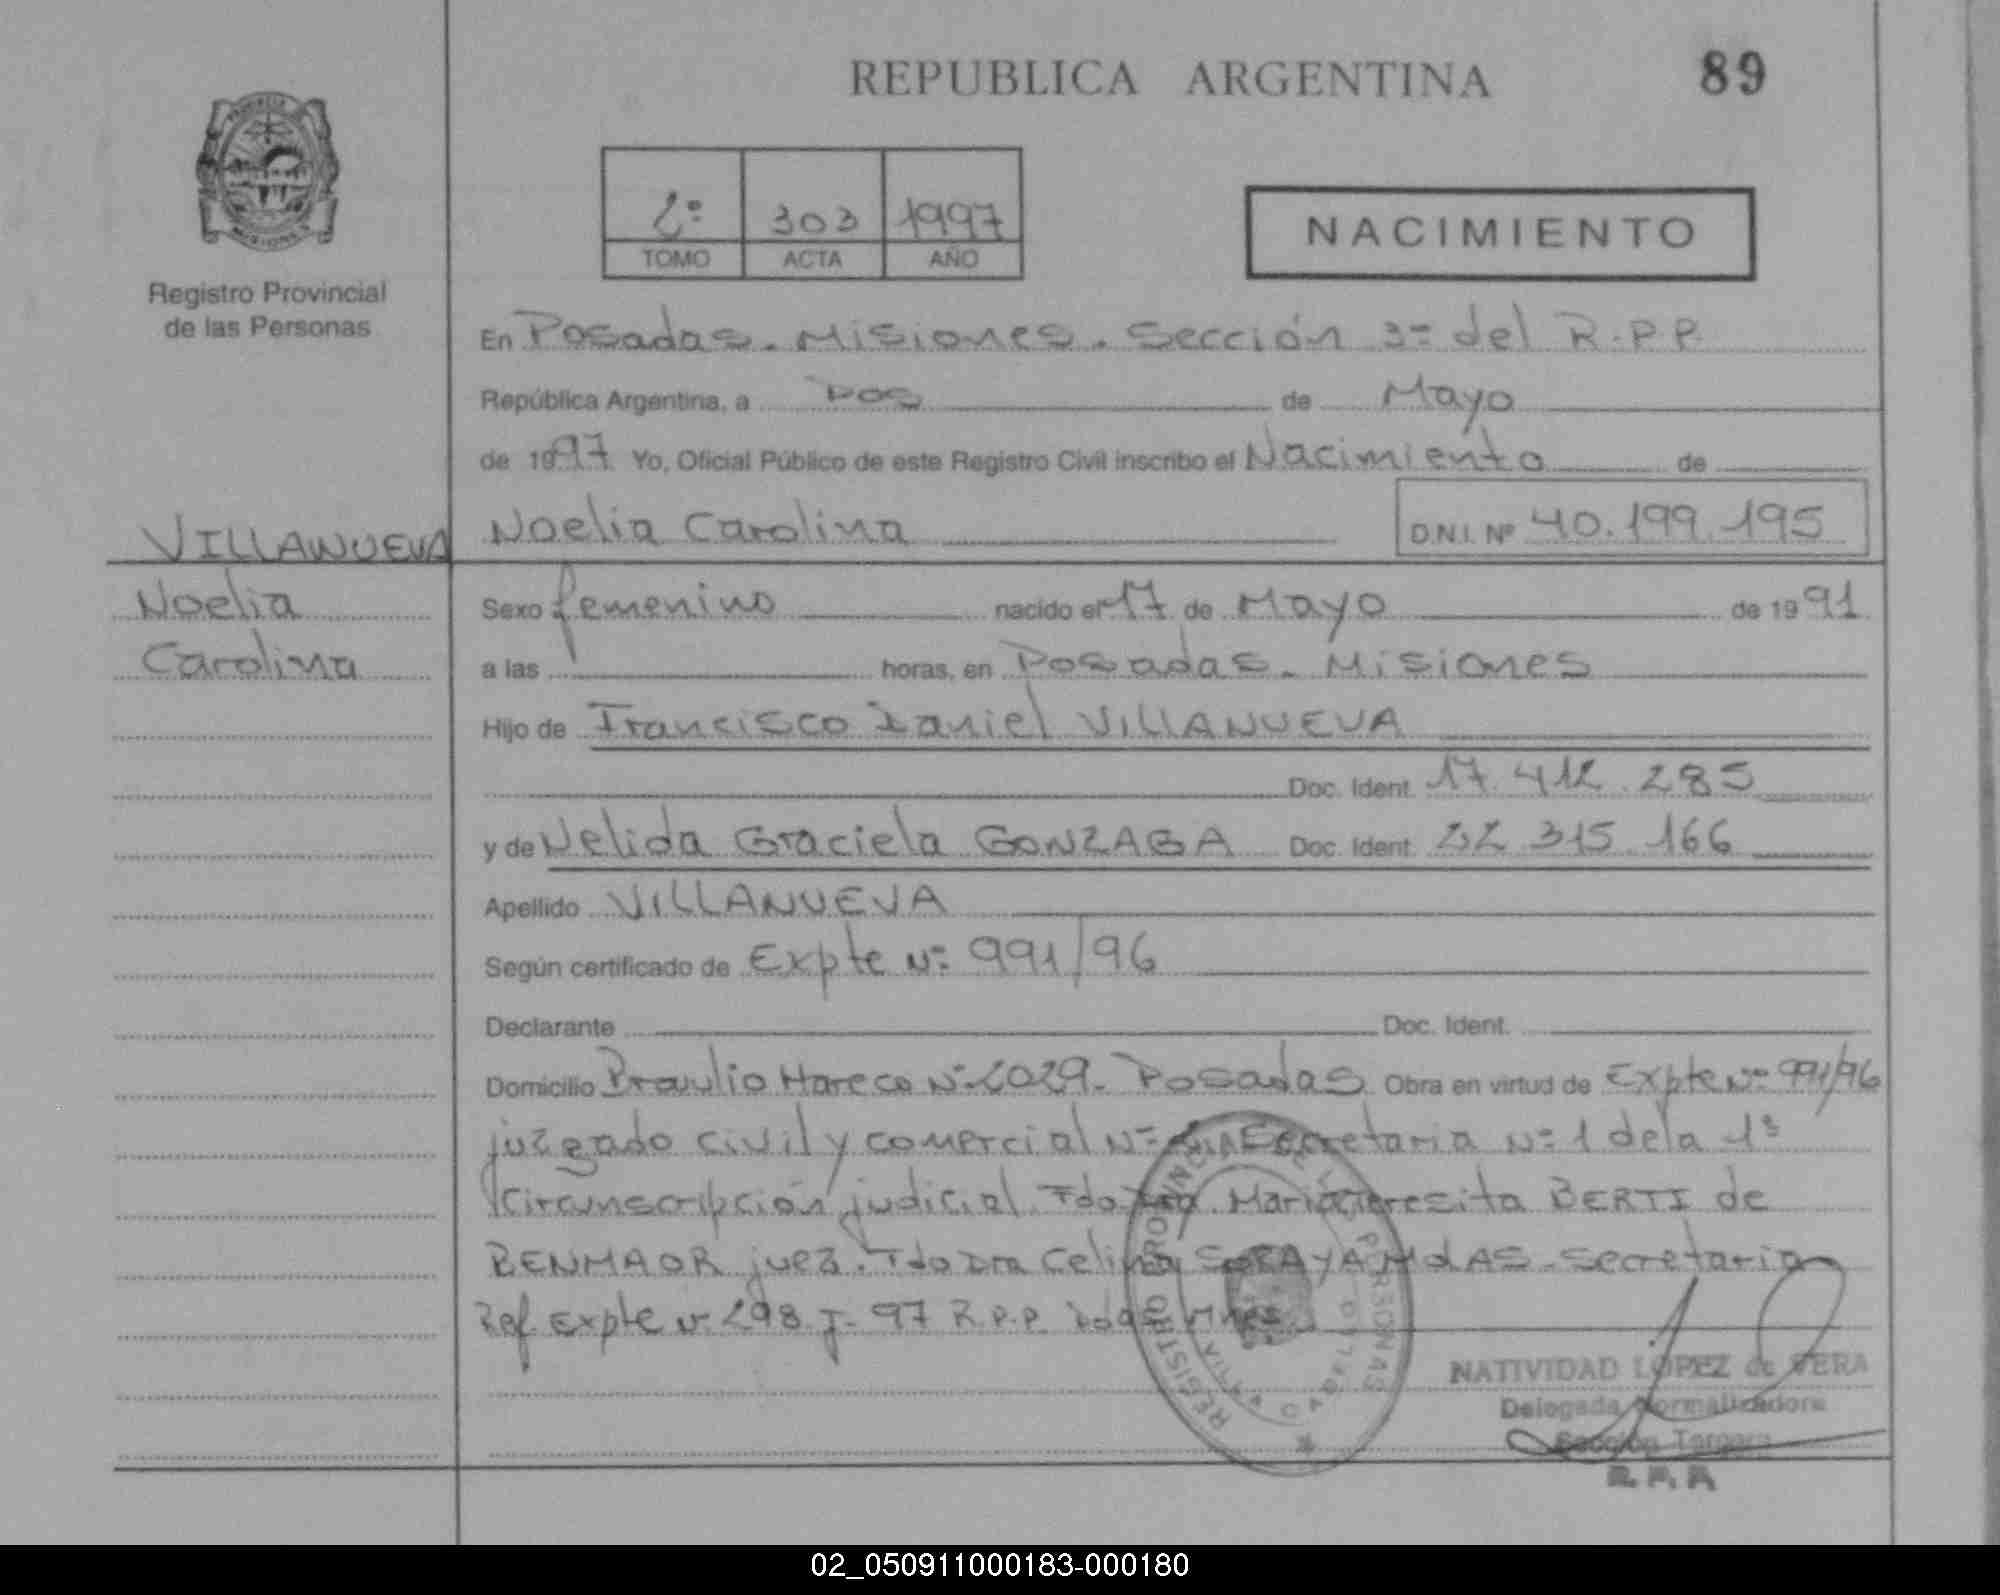 REPUBLICA ARGENTINA
89
2º 303 1997
TOMO ACTA AÑO
NACIMIENTO
Registro Provincial
de las Personas
En Posadas. Misiones. Sección 3º del R.P.P.
República Argentina, a Dos de Mayo
de 1997 Yo, Oficial Público de este Registro Civil inscribo el Nacimiento de
VILLANUEVA
Noelia Carolina D.N.I. Nº 40.199.195
Noelia
Carolina
Sexo femenino nacido el 17 de Mayo de 1991
a las horas, en Posadas. Misiones
Hijo de Francisco Daniel VILLANUEVA
Doc. Ident. 17.412.285
y de Nelida Graciela GONZAGA Doc. Ident. 22 315 166
Apellido VILLANUEVA
Según certificado de Expte Nº 991/96
Declarante Doc. Ident.
Domicilio Braulio Hareco Nº 2029. Posadas Obra en virtud de Expte Nº 991/96
juzgado civil y comercial Nº Secretaria Nº 1 de la 1ª
Circunscripción judicial. Fdo Dra. Maria teresita BERTI de
BENMAOR juez. Fdo Dra Celina Secretaria
Ref. Expte Nº 298 J- 97 R.P.P. Pdas Mnes
REGISTRO PROVINCIAL DE LAS PERSONAS
NATIVIDAD LOPEZ de VERA
Delegada Normalizadora
Sección Tercera
R. P. P.
02_050911000183-000180